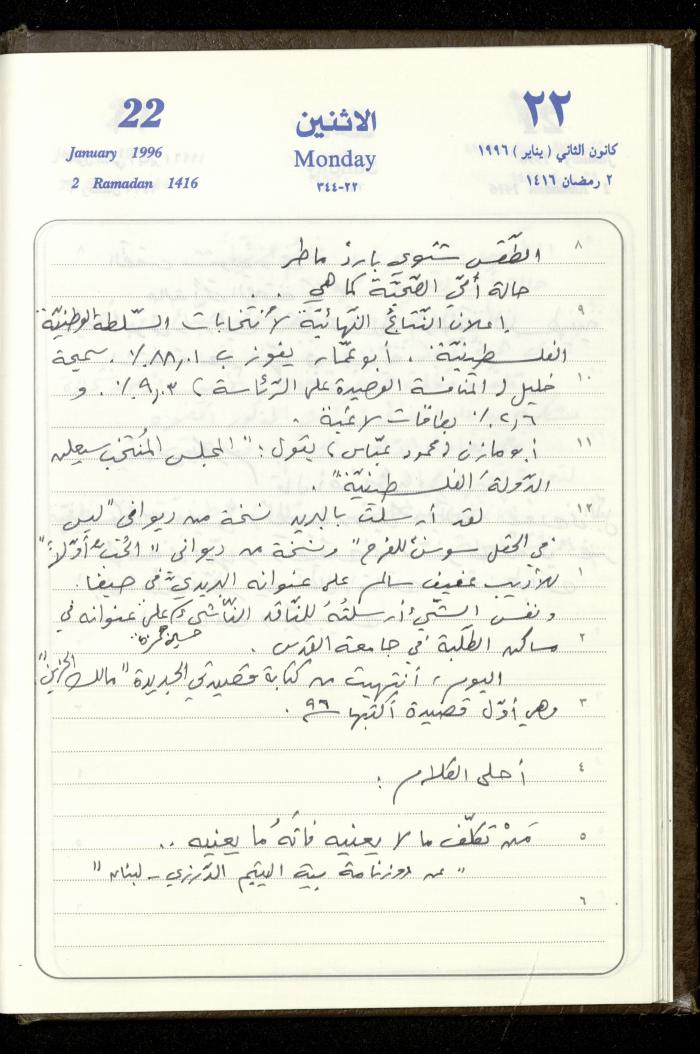 22
January 1996
2 Ramadan 1416
الاثنين
Monday
٢٢-٣٤٤
٢٢
كانون الثاني (يناير) ١٩٩٦
٢ رمضان ١٤١٦
٨ الطّقس شتوي بارد ماطر
حالة أمّي الصّحيّة كما هي . .
٩ إعلان النّتائج النّهائيّة لأنتخابات السّلطة الوطنيّة
الفلسطينيّة . أبو عمّار يفوز ب ٨٨,٠١٪ . سميحة
١٠ خليل (المنافسة الوحيدة على الرّئاسة) ٩,٠٣٪ . و
٢,٦٪ بطاقات لاغية .
١١ أبو مازن (محمود عبّاس) يقول: "المجلس المُنتخب سيعلن
الدّولة الفلسطينيّة" .
١٢ لقد أرسلتُ بالبريد نسخة من ديواني "ليس
في الحقل سوسنٌ للفرح" ونسخة من ديواني "الحُبّ أوّلاً"
١ للأديب عفيف سالم على عنوانه البريديّ في حيفا.
ونفس الشّيء أرسلتُهُ للنّاقد النّاشىء على عنوانه في
حسين حمزة
٢ مساكن الطّلبة في جامعة القدس .
اليوم، أنتهيت من كتابة قصيدتي الجديدة "مالك الحزين"
٣ وهي أوّل قصيدة أكتبها ٩٦ .
٤ أحلى الكلام :
٥ مَنْ تكلّف ما لا يعنيه فاتَهُ ما يعنيه ..
" عن روزنامة بيت اليتيم الدّرزي - لبنان "
٦